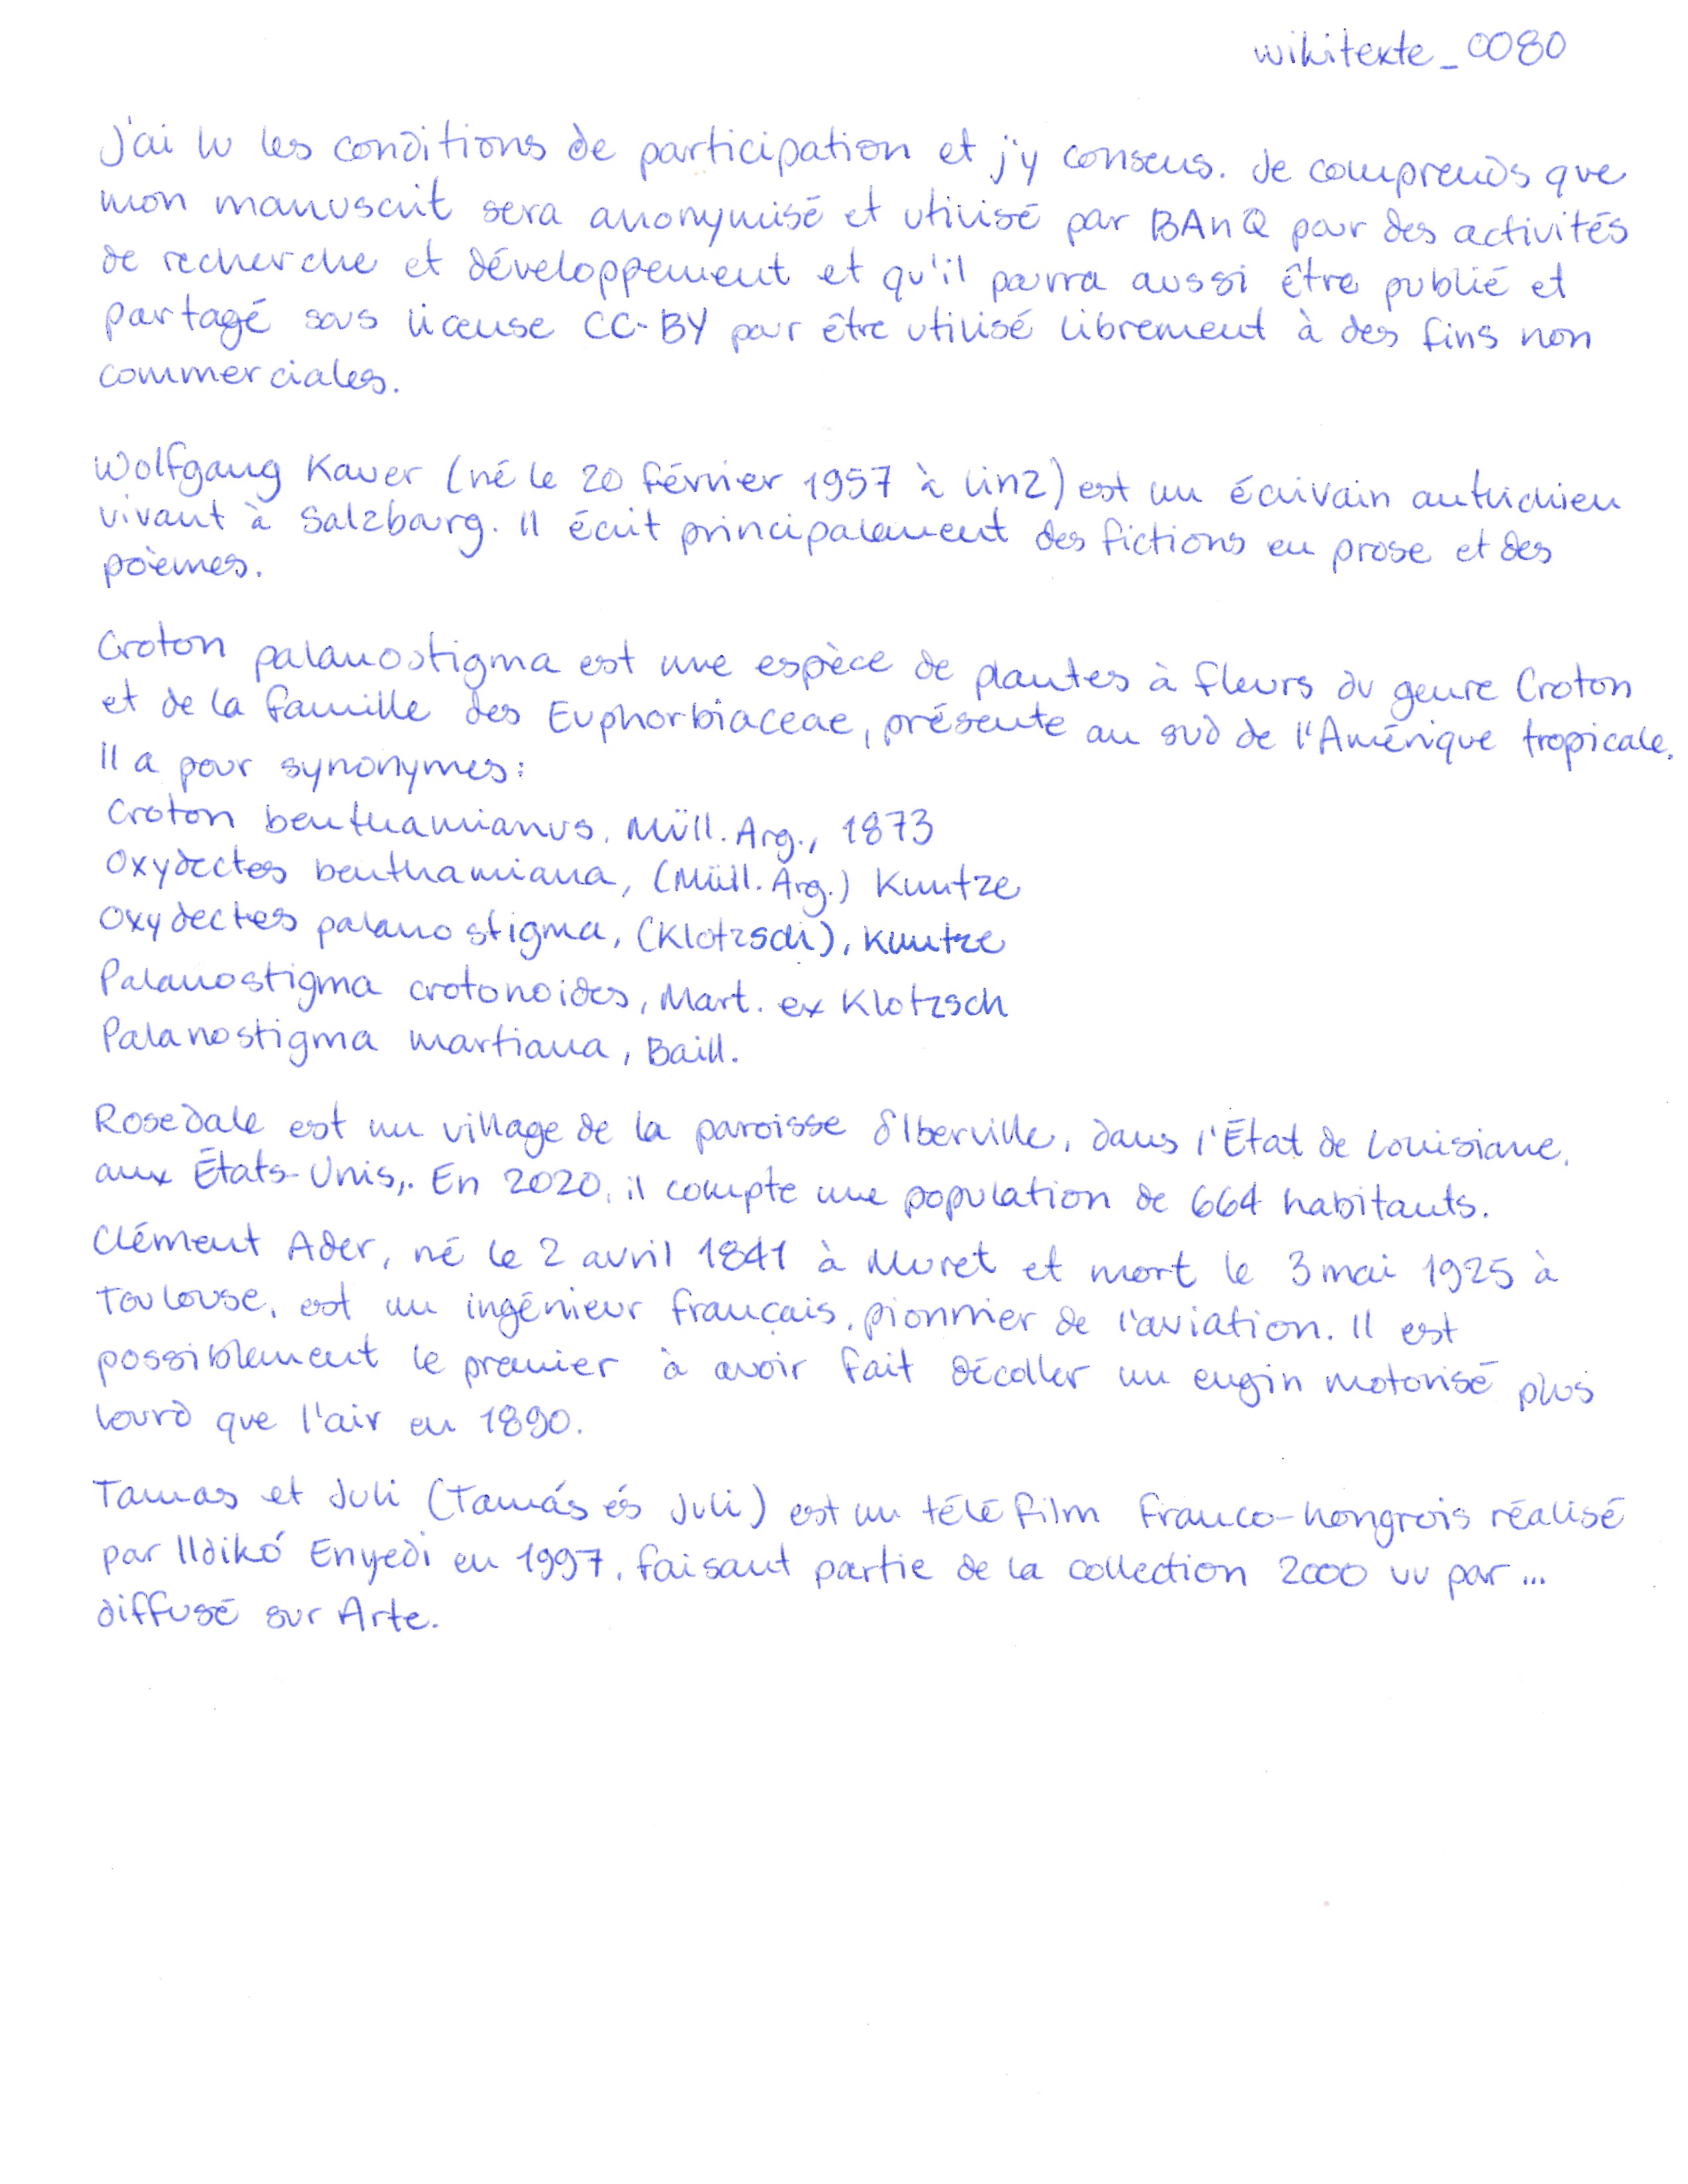 wikitexte_0080
J'ai lu les conditions de participation et j'y consens. Je comprends que
mon manuscrit sera anonymisé et utilisé par BAnQ pour des activités
de recherche et développement et qu'il pourra aussi être publié et
partagé sous license CC-BY pour être utilisé librement à des fins non
commerciales.
Wolfgang Kauer (né le 20 février 1957 à Linz) est un écrivain autrichien
vivant à Salzbourg. Il écrit principalement des fictions en prose et des
poèmes.
Croton palanostigma est une espèce de plantes à fleurs du genre Croton
et de la famille des Euphorbiaceae, présente au sud de l'Amérique tropicale.
Il a pour synonymes:
Croton benthamianus, Müll. Arg., 1873
Oxydectes benthamiana, (Müll. Arg.) Kuntze
Oxydectes palanostigma, (Klotzsch), Kuntze
Palanostigma crotonoides, Mart. ex Klotzsch
Palanostigma martiana, Baill.
Rosedale est un village de la paroisse d'Iberville, dans l'État de Louisiane,
aux États-Unis,. En 2020, il compte une population de 664 habitants.
Clément Ader, né le 2 avril 1841 à Muret et mort le 3 mai 1925 à
Toulouse, est un ingénieur français, pionnier de l'aviation. Il est
possiblement le premier à avoir fait décoller un engin motorisé plus
lourd que l'air en 1890.
Tamas et Juli (Tamás és Juli) est un téléfilm franco-hongrois réalisé
par Ildikó Enyedi en 1997, faisant partie de la collection 2000 vu par...
diffusé sur Arte.